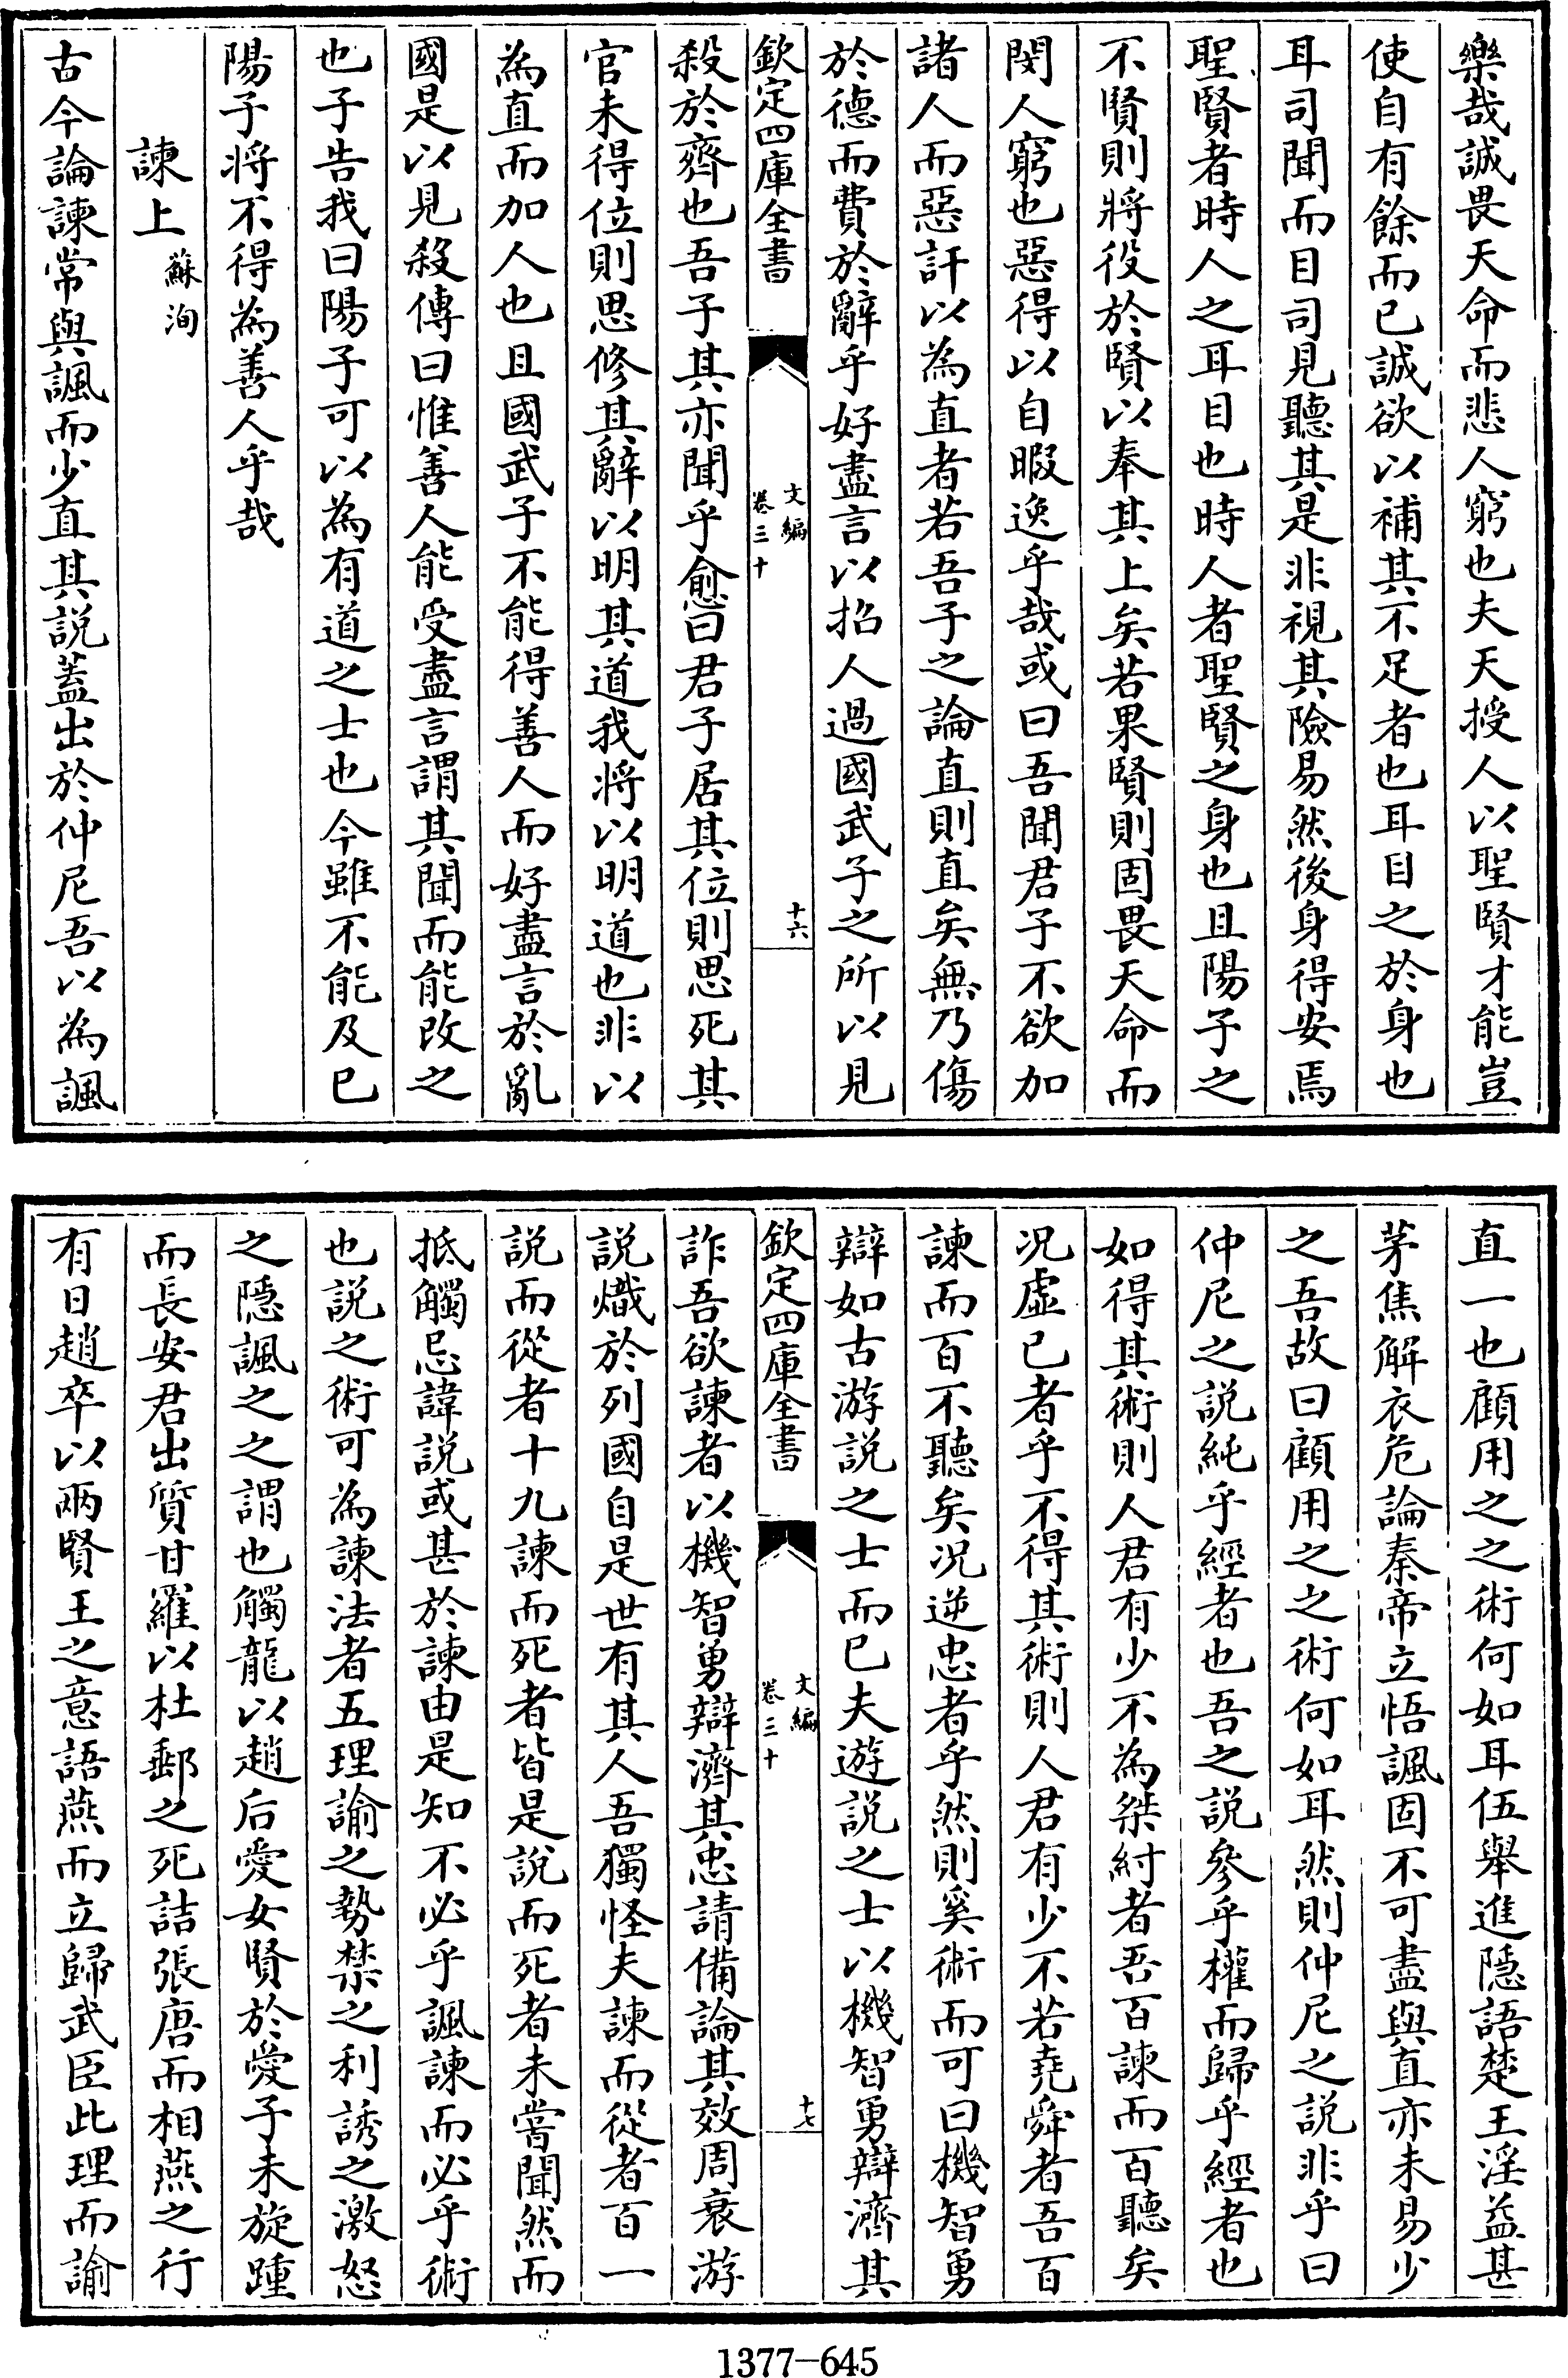 樂哉誠畏天命而悲人窮也夫天授人以聖賢才能豈
使自有餘而已誠欲以補其不足者也耳目之於身也
耳司聞而目司見聽其是非視其險易然後身得安焉
聖賢者時人之耳目也時人者聖賢之身也且陽子之
不賢則將役於賢以奉其上矣若果賢則固畏天命而
閔人窮也惡得以自暇逸乎哉或曰吾聞君子不欲加
諸人而惡訐以為直者若吾子之論直則直矣無乃傷
於德而費於辭乎好盡言以招人過國武子之所以見
欽定四庫全書
文編
卷三十
十六
殺於齊也吾子其亦聞乎愈曰君子居其位則思死其
官未得位則思修其辭以明其道我將以明道也非以
為直而加人也且國武子不能得善人而好盡言於亂
國是以見殺傳曰惟善人能受盡言謂其聞而能改之
也子告我曰陽子可以為有道之士也今雖不能及已
陽子将不得為善人乎哉
諫上 蘇洵
古今論諫常與諷而少直其説蓋出於仲尼吾以為諷
直一也顧用之之術何如耳伍舉進隱語楚王淫益甚
茅焦解衣危論秦帝立悟諷固不可盡與直亦未易少
之吾故曰顧用之之術何如耳然則仲尼之説非乎曰
仲尼之説純乎經者也吾之説參乎權而歸乎經者也
如得其術則人君有少不為桀紂者吾百諫而百聽矣
况虚已者乎不得其術則人君有少不若堯舜者吾百
諫而百不聽矣况逆忠者乎然則奚術而可曰機智勇
辯如古游説之士而已夫遊説之士以機智勇辯濟其
欽定四庫全書
文編
卷三十
十七
詐吾欲諫者以機智勇辯濟其忠請備論其效周衰游
説熾於列國自是世有其人吾獨怪夫諫而從者百一
説而從者十九諫而死者皆是説而死者未嘗聞然而
抵觸忌諱説或甚於諫由是知不必乎諷諫而必乎術
也説之術可為諫法者五理諭之勢禁之利誘之激怒
之隱諷之之謂也觸龍以趙后愛女賢於愛子未旋踵
而長安君出質甘羅以杜郵之死詰張唐而相燕之行
有日趙卒以兩賢王之意語燕而立歸武臣此理而諭
1377-645